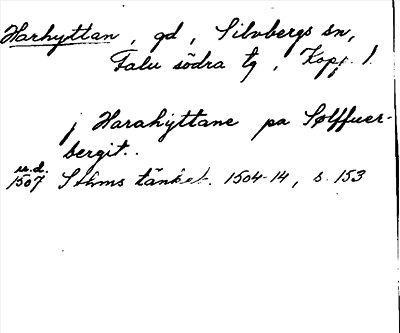 Harhyttan, gd, Silvbergs sn,
Falu södra tg, Kopp. l.
j Harahyttane pa Sølffuer-
bergit..
u.d.
1507 Sthms tänkeb. 1504-14, s. 153